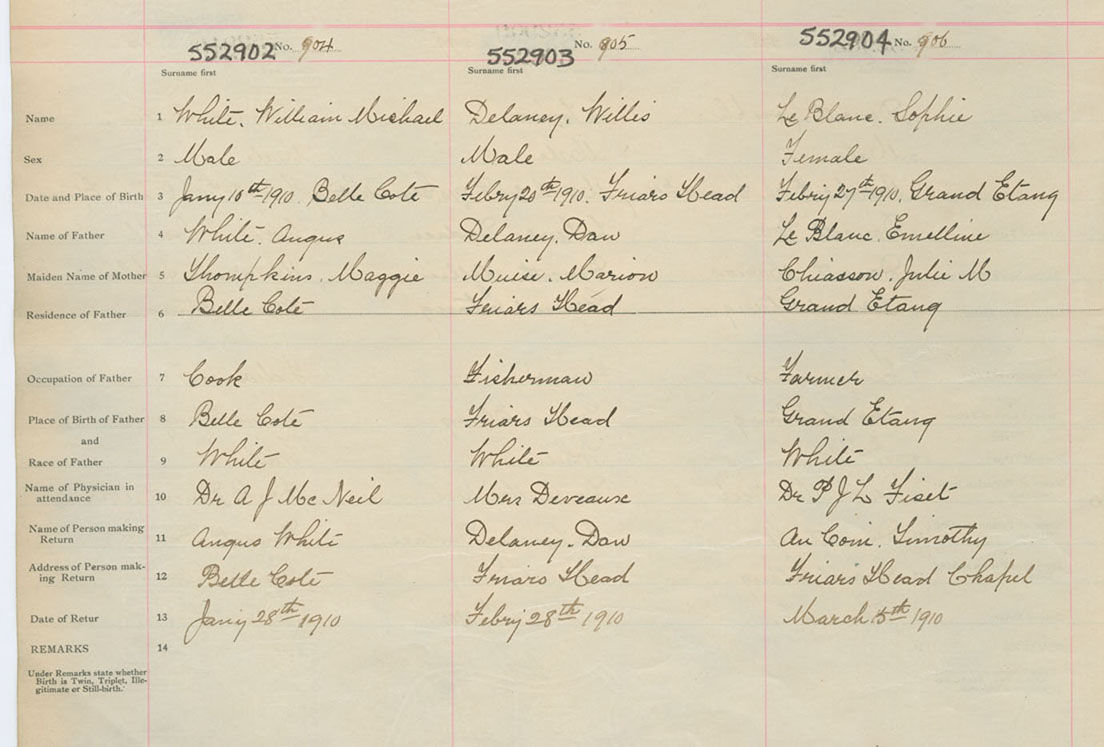 552902 No. 904 552903 No. 905 552904 No. 906
Surname first Surname first Surname first
Name 1 White, William Michael Delaney, Willis Le Blanc, Sophie
Sex 2 Male Male Female
Date and Place of Birth 3 Jany 10th 1910, Belle Cote Febry 20th 1910, Friars Head Febry 27th 1910, Grand Etang
Name of Father 4 White, Angus Delaney, Dan Le Blanc, Emelline
Maiden Name of Mother 5 Thompkins, Maggie Muise, Marion Chiasson, Julie M
Residence of Father 6 Belle Cote Friars Head Grand Etang
Occupation of Father 7 Cook Fisherman Farmer
Place of Birth of Father 8 Belle Cote Friars Head Grand Etang
and
Race of Father 9 White White White
Name of Physician in
attendance 10 Dr A J McNeil Mrs Deveause Dr P J L Fiset
Name of Person making
Return 11 Angus White Delaney, Dan Au Coin, Timothy
Address of Person mak-
ing Return 12 Belle Cote Friars Head Friars Head Chapel
Date of Retur 13 Jany 28th 1910 Febry 28th 1910 March 15th 1910
REMARKS 14
Under Remarks state whether
Birth is Twin, Triplet, Ille-
gitimate or Still-birth.